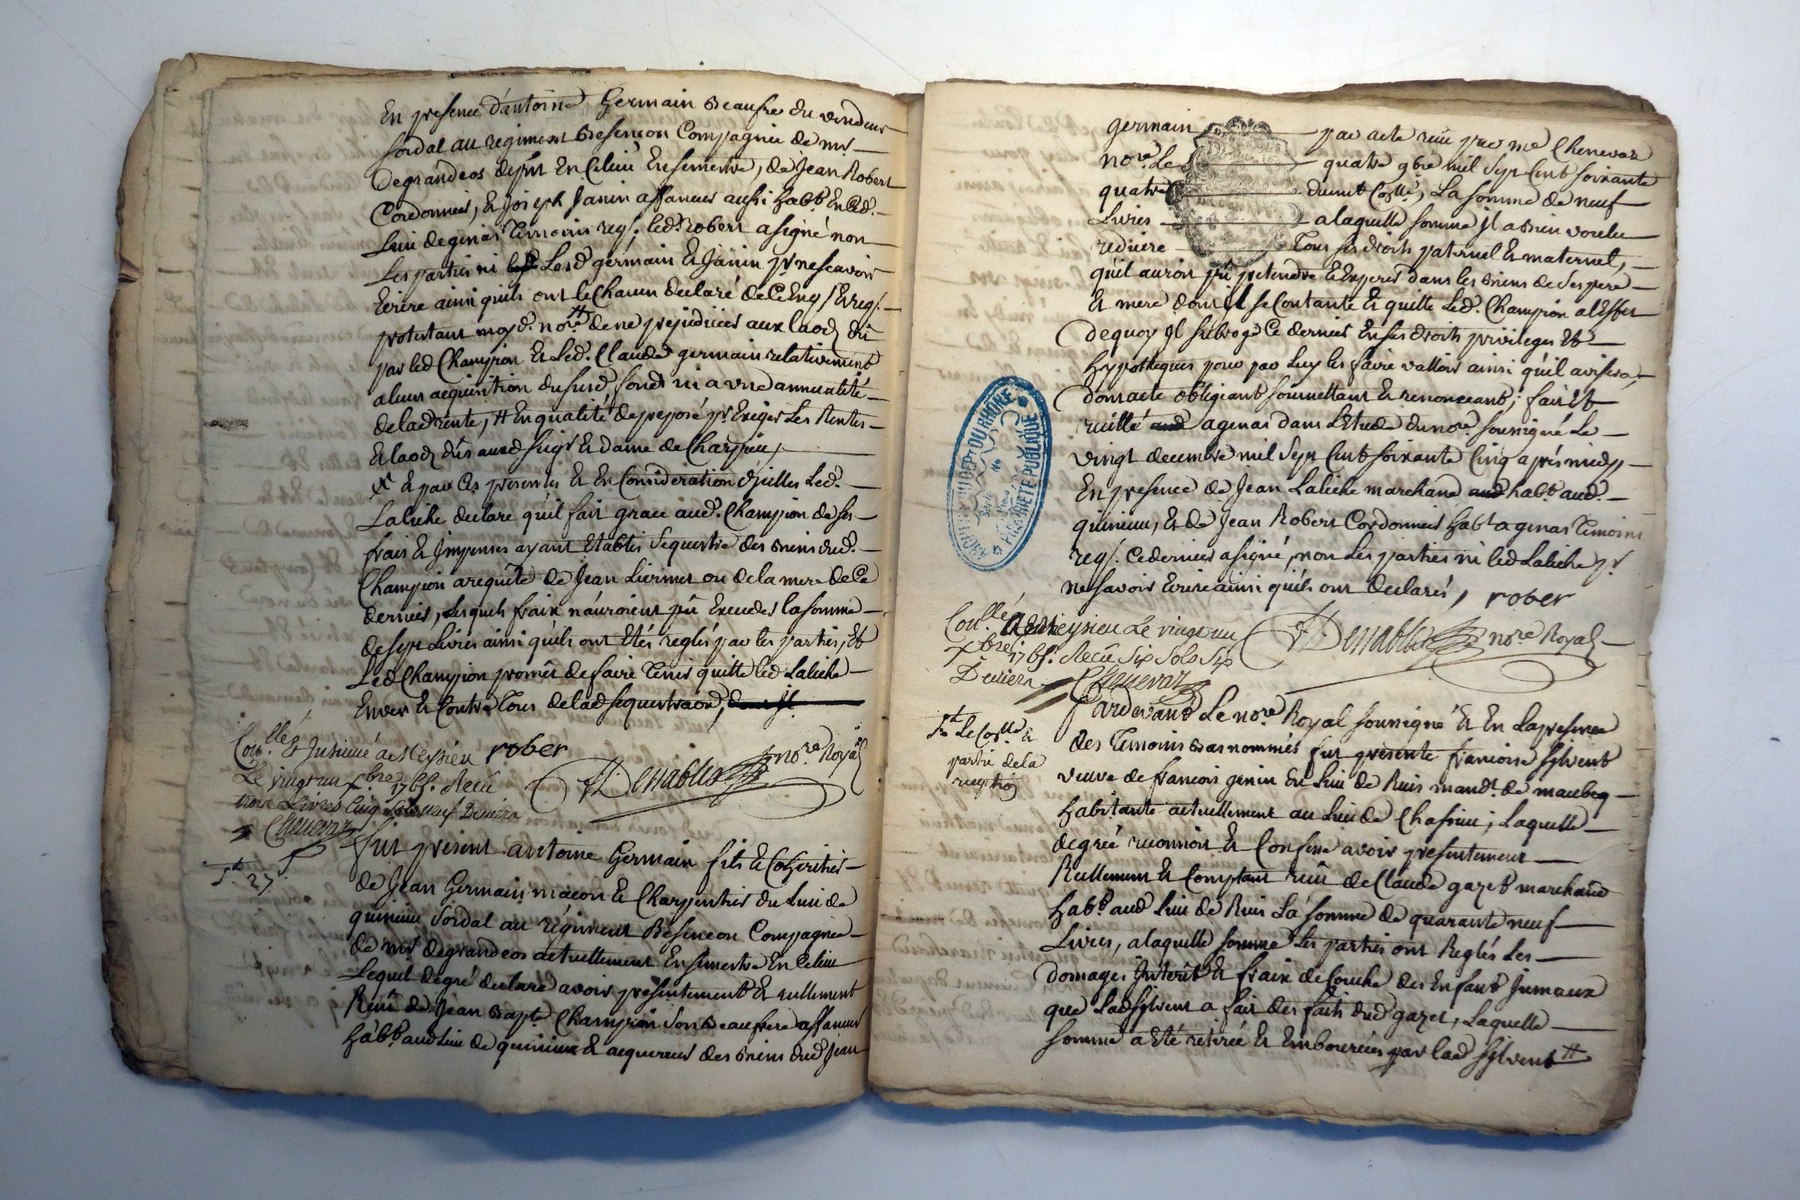 En presence d'antoine Germain Beaufre du vendeur
soldat au regiment Besencon Compagnie de mr
Degrandeos de pnt En Ce lieu En semestre, de Jean Robert
Cordonnier, & joseph Janin affaneur aussi habt En Cedt
lieu de genas Temoins req. led. Robert a signé non
Les parties ni Lesd germain & Janin pr ne scavoir
Ecrire ainsi quils ont le Chacun declaré de Ce Enq / & req /.
protestant moyd. nore H de ne prejudicier aux laods du
par led Champion & Led. Claude germain relativement
a leur acquisition du susd. fonds ni a une annuatité
de lad rente, H En qualité de preposé pr Exiger Les Rentes
& laods dûs aux seigr & dame de Charpieu,
X & par Ces presentes & En Consideration d'jcelles Led.
Labiche declare qu'il fait grace aud. Champion de ses
frais & Jmpenses ayant Etablis sequestre des Biens dud.
Champion a requête de Jean Liermet ou de la mere de Ce
dernier, Lesquels fraix n'auroient pû Exceder la somme
de sept Livres ainsi qu'ils ont Etés reglés par les parties, Et
Led Champion promet de faire Tenir quitte led Labiche
Envers & Contre Tous de lad sequestraon,
Con.llé & Jnsinué a Meyzieu rober
Le vingt un Xbre 1765. Recu
trois Livres Cinq sols neuf Deniers
Chenevaz
Denablet nore Royal
Jt. 27
fut present antoine Germain fils & Coheritier
de Jean Germain macon & Charpentier du lieu de
quincieu soldat au régiment Besencon Compagnie
de mr. degrandeos actuellement En semestre En Ce lieu
Lequel de gré declare avoir presentement & reellement
Recû de Jean Bapte Champion son Beaufrere affaneur
habt. aud lieu de quincieu & acquereur des Biens dud Jean
germain par acte recu par me Chenevaz
nore. Le quatre 9bre mil sept Cent soixante
quatre duemt Collé, La somme de neuf
Livres a laquelle somme Jl a Bien voulu
reduire Tous ses droits paternel & maternel,
qu'il auroit pû pretendre & Esperer dans les Biens de ses pere
& mere dont Jl se Contante & quitte Led. Champion a l'Effet
de quoy Jl subroge Ce dernier En ses droits privileges Et
hypotheques pour par Luy les faire valloir ainsi qu'il avisera,
Dont acte obligeant soumettant & renonceant: fait Et
recitté a genas dans L'Etude du nore soussigné Le
vingt decembre mil sept Cent soixante Cinq après midy
En presence de Jean Labiche marchand habt aud.
quincieu, & de Jean Robert Cordonnier habt a genas Temoins
req /. Ce dernier a signé, non Les parties ni led Labiche pr.
ne savoir Ecrire ainsi qu'ils ont declarés, rober
Con.llé a Meyzieu Le vingt un
Xbre 1765. Recu six sols six
Deniers Chenevaz
Denablet nore Royal
ARCHIVES DU DEPT DU RHONE
FIRST RETE PUBLIQUE
Jt. Le Collé a
partie de la
reception
Pardevant Le nore. Royal soussigné & En La presence
des Temoins Bas nommés fut presente francoise sylvent
veuve de francois genin du lieu de Ruis mandt. de maubeq
habitante actuellement au lieu de Chassieu; Laquelle
de gré reconnoit & Confesse avoir presentement
Reellement & Comptant recû de Claude gazet marchand
habt. aud lieu de Ruis La somme de quarante neuf
Livres, a laquelle somme Les parties ont Reglés Les
domages Jnterêts & fraix de Couche des Enfants Jumeaux
que Lad sylvent a fait des faits dud gazet, Laquelle
somme a Eté retirée & Emboursée par lad sylvent H